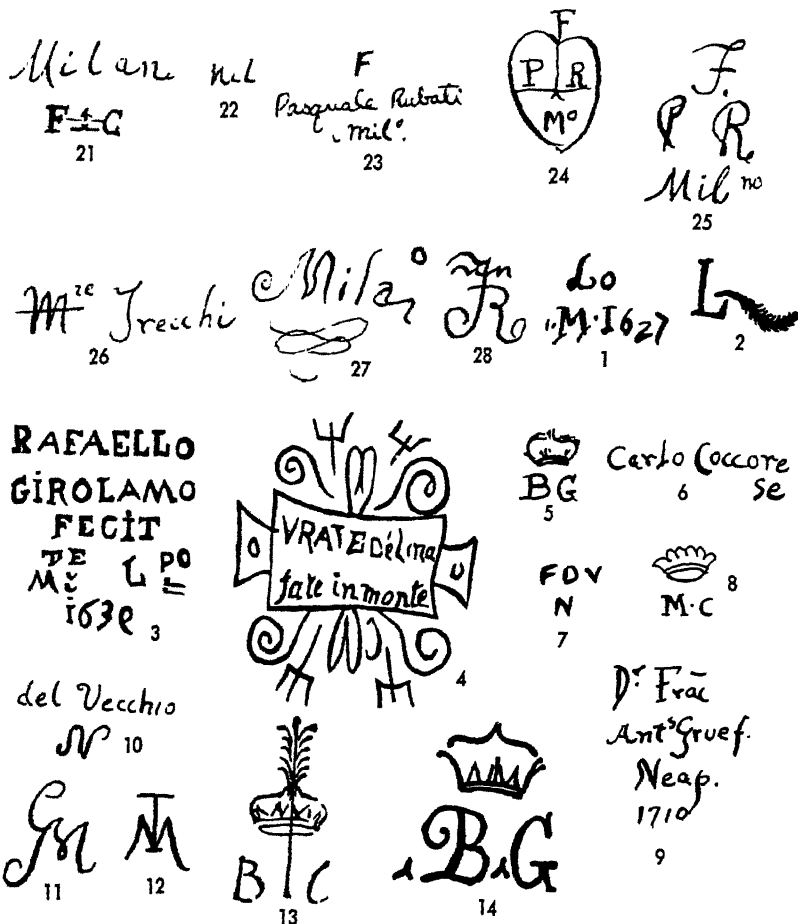 Milan
F C
21
22
F
Pasquale Rubati
Milº.
23
F
P R
Mº
24
F.
P R
Mil no
25
Mre Trecchi
26
Milaº
27
28
Lo
M·1627
1
L
2
RAFAELLO
GIROLAMO
FECIT
M L PO
163
3
VRATE Délina
fate in monte
4
B G
5
Carlo Coccore
se
6
FDV
N
7
M·C
8
del Vecchio
N
10
Dr. Frāc
Ants Gruef.
Neap.
1710
9
GM
11
TM
12
B C
13
B G
14